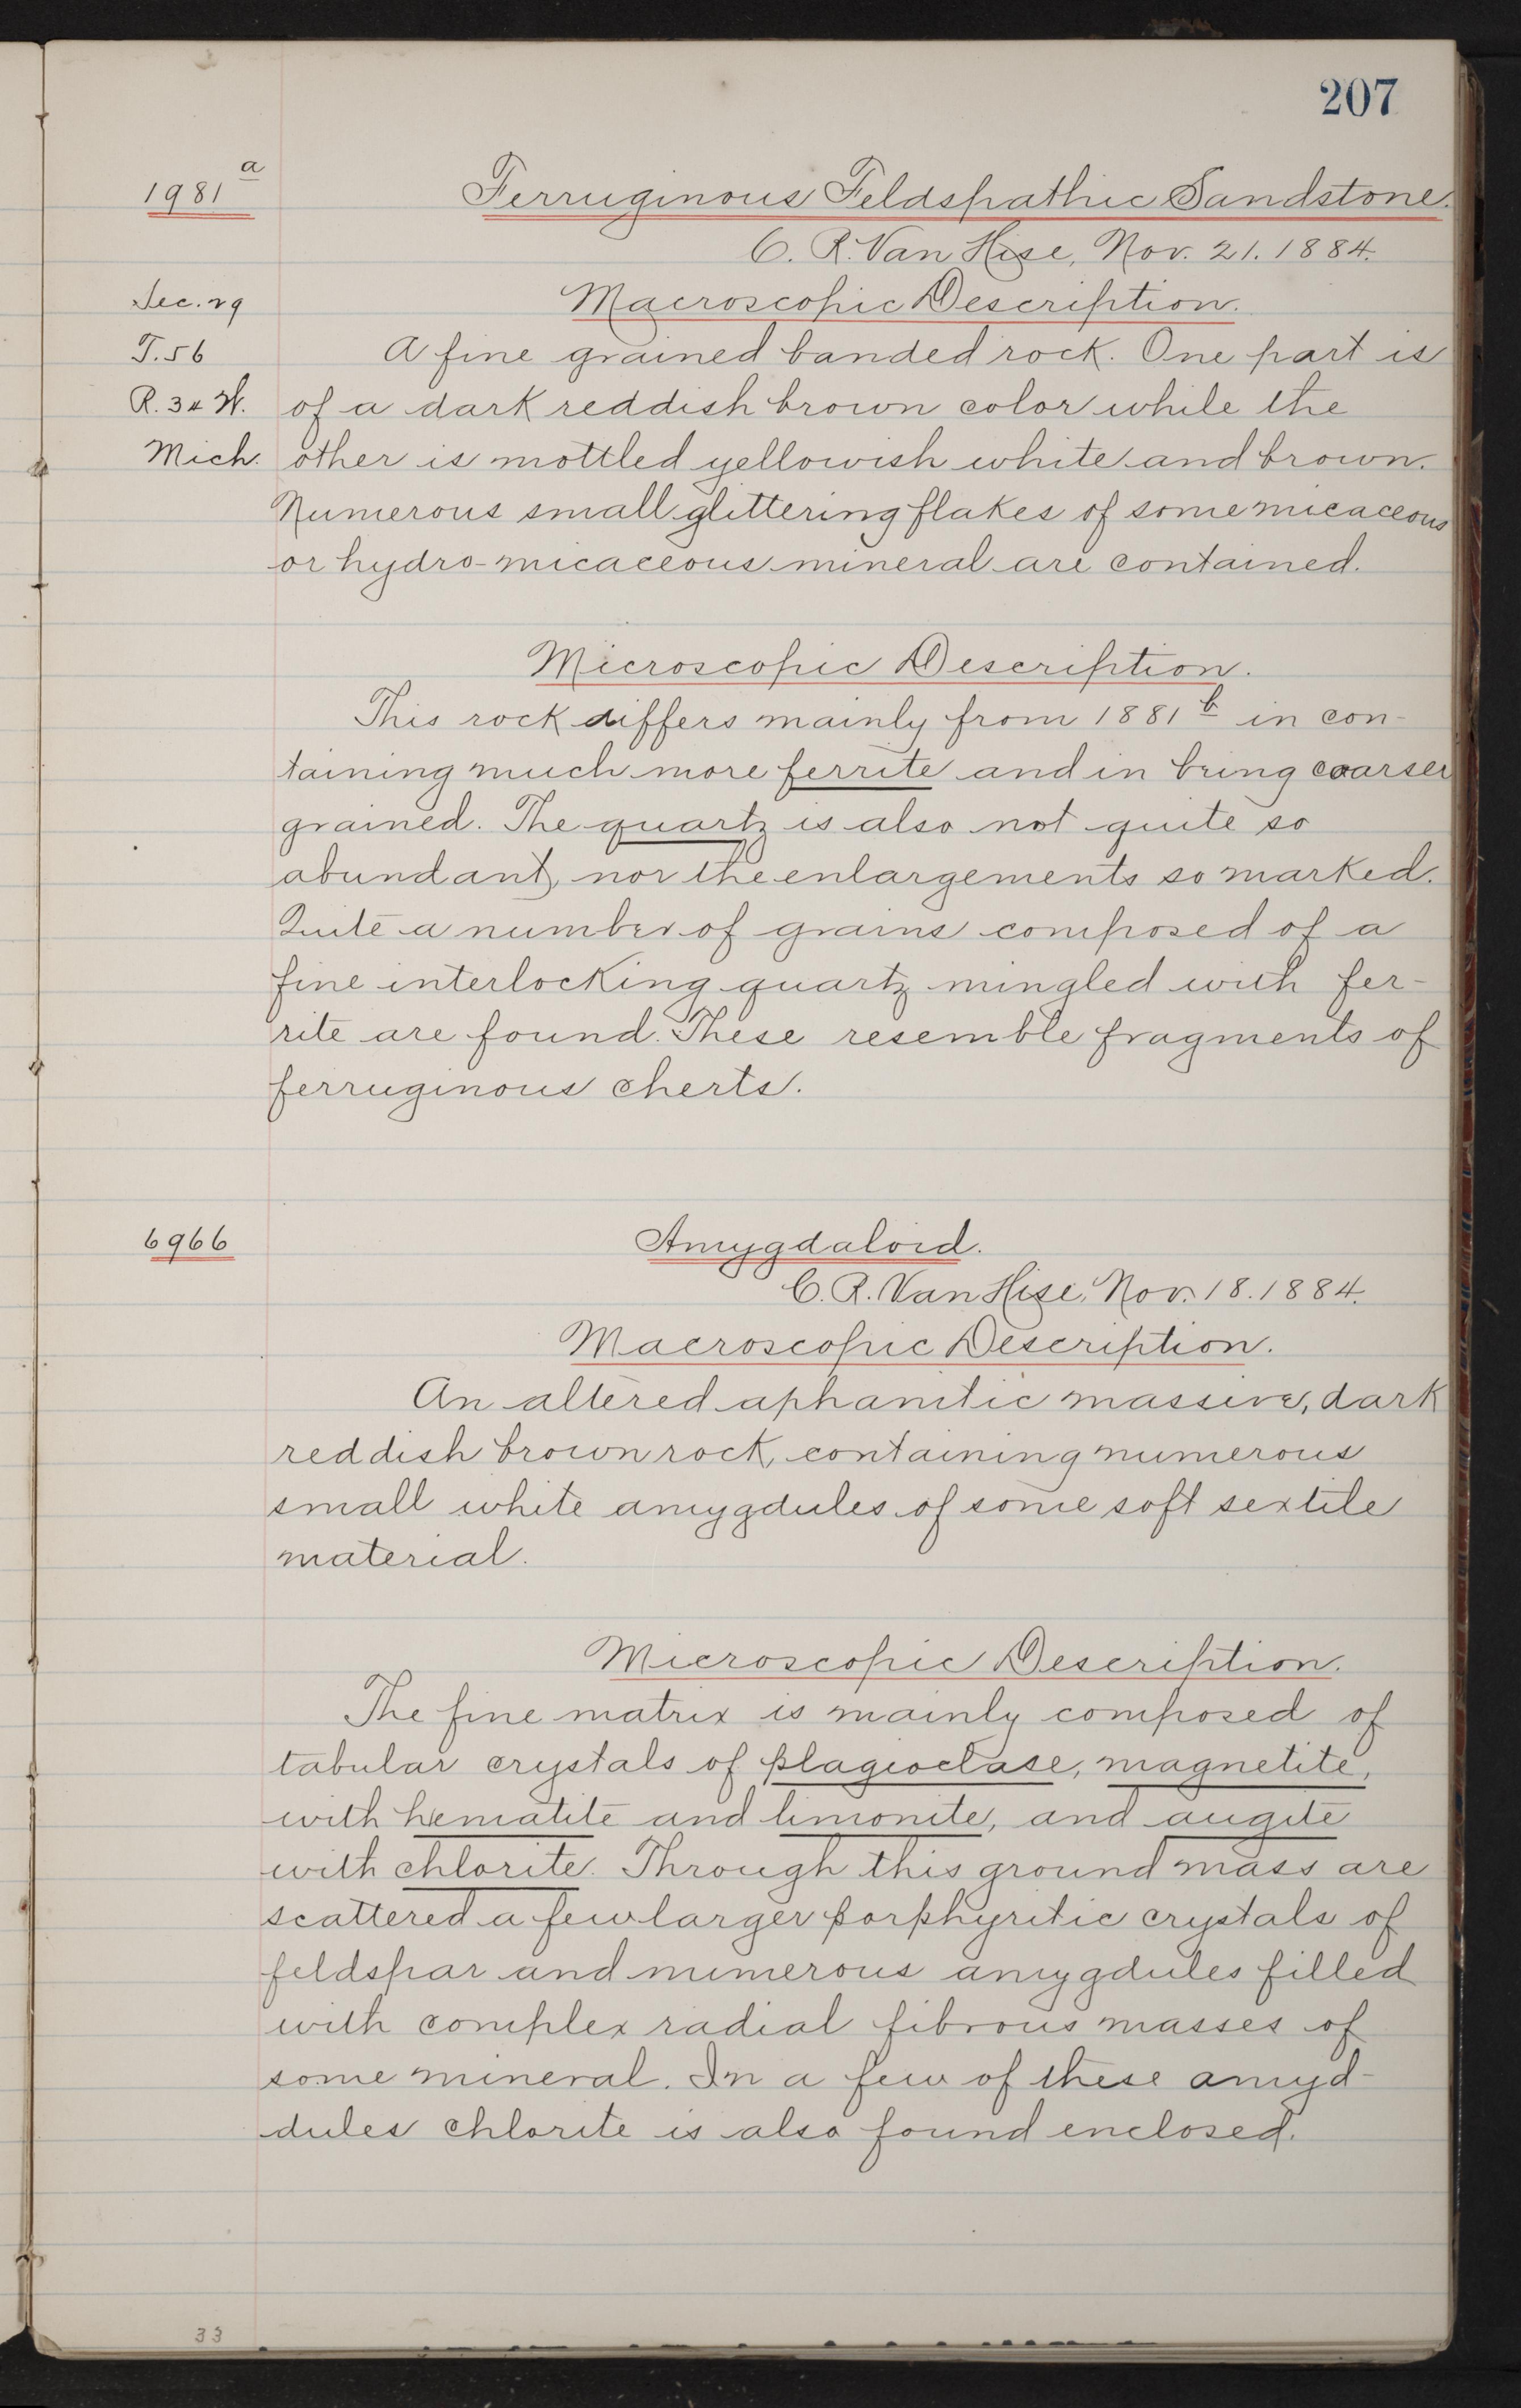 207
1981 a
Ferruginous Feldspathic Sandstone.
C. R. Van Hise, Nov. 21. 1884.
Sec. 29
Macroscopic Description.
T. 56
A fine grained banded rock. One part is
R. 34 W.
of a dark reddish brown color while the
Mich.
other is mottled yellowish white and brown.
Numerous small glittering flakes of some micaceous
or hydro-micaceous mineral are contained.
Microscopic Description.
This rock differs mainly from 1881 b in con-
taining much more ferrite and in being coarser
grained. The quartz is also not quite so
abundant, nor the enlargements so marked.
Quite a number of grains composed of a
fine interlocking quartz mingled with fer-
rite are found. These resemble fragments of
ferruginous cherts.
6966
Amygdaloid.
C. R. Van Hise, Nov. 18. 1884.
Macroscopic Description.
An altered aphanitic massive, dark
reddish brown rock, containing numerous
small white amygdules of some soft sextile
material.
Microscopic Description.
The fine matrix is mainly composed of
tabular crystals of plagioclase, magnetite,
with hematite and limonite, and augite
with chlorite. Through this ground mass are
scattered a few larger porphyritic crystals of
feldspar and numerous amygdules filled
with complex radial fibrous masses of
some mineral. In a few of these amyd-
dules chlorite is also found enclosed.
33